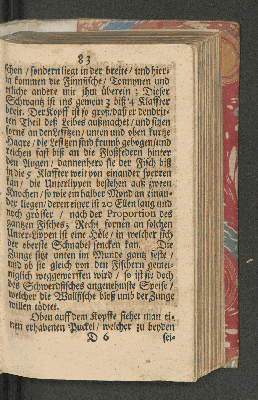 83
schen / sondern liegt in der breite / und hier-
in kommen die Finnfische / Tonnynen und
etliche andere mit ihm überein; Dieser
Schwantz ist ins gemein 3 biß 4 Klaffter
breit. Der Kopff ist so groß / daß er den dritt-
ten Theil deß Leibes außmachet / und sitzen
forne an den Lefftzen / unten und oben kurtze
Haare / die Lefftzen sind krumb gebogen / und
reichen fast biß an die Floßfedern hinter
den Augen / dannenhero sie der Fisch biß
in die 5 Klaffter weit von einander sperren
kan / die Unterlippen bestehen auß zween
Knochen / so wie ein halber Mond an einan-
der liegen / deren einer ist 20 Ellen lang und
noch grösser / nach der Proportion des
gantzen Fisches; Recht fornen an solchen
Unterlippen ist eine Höle / in welcher sich
der oberste Schnabel sencken kan. Die
Zunge sitzt unten im Munde gantz feste /
und ob sie gleich von den Fischern gemei-
niglich weggeworffen wird / so ist sie doch
des Schwerdfisches angenehmste Speise /
welcher die Wallfische bloß umb der Zunge
willen tödtet.
Oben auff dem Kopffe siehet man ei-
nen erhabenen Puckel / welcher zu beyden
D 6 sei-